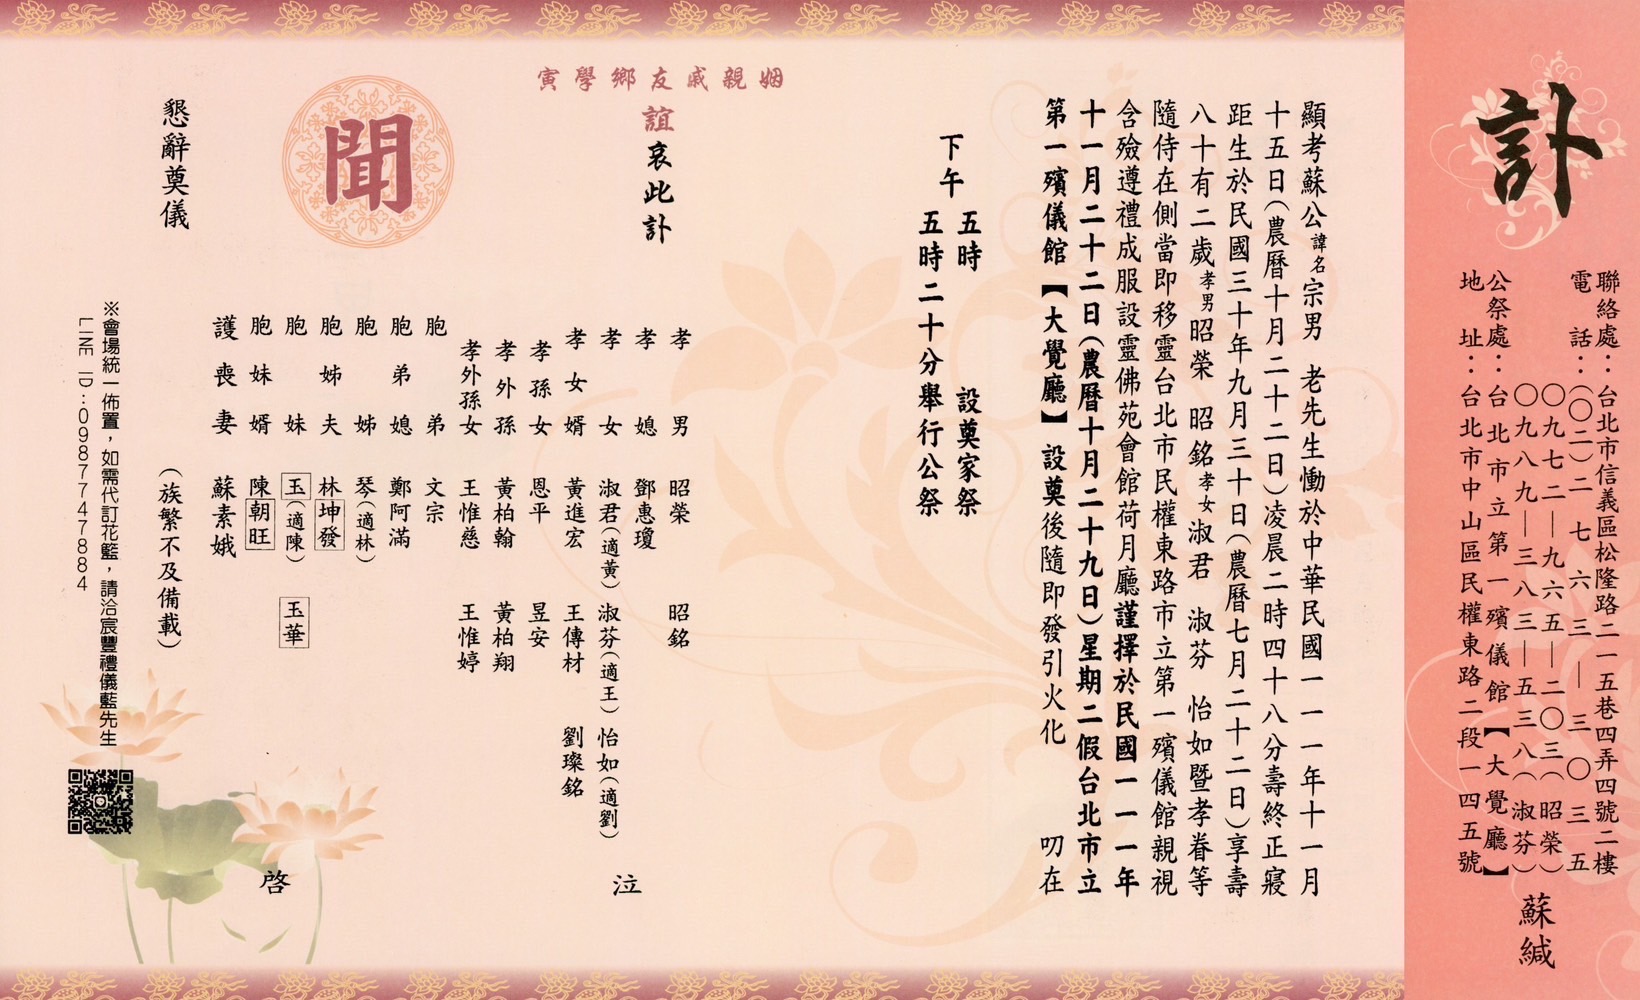 訃
聯絡處：台北市信義區松隆路二一五巷四弄四號二樓
電話：（〇二）二七六三—三〇三五
〇九七二—九六五—二〇三（昭榮）
〇九八九—三八三—五三八（淑芬）
公祭處：台北市立第一殯儀館【大覺廳】
地址：台北市中山區民權東路二段一四五號
蘇緘
顯考蘇公諱名宗男　老先生慟於中華民國一一一年十一月
十五日（農曆十月二十二日）凌晨二時四十八分壽終正寢
距生於民國三十年九月三十日（農曆七月二十二日）享壽
八十有二歲孝男昭榮　昭銘孝女淑君　淑芬　怡如暨孝眷等
隨侍在側當即移靈台北市民權東路市立第一殯儀館親視
含殮遵禮成服設靈佛苑會館荷月廳謹擇於民國一一一年
十一月二十二日（農曆十月二十九日）星期二假台北市立
第一殯儀館【大覺廳】設奠後隨即發引火化　叨在
下午
五時　設奠家祭
五時二十分舉行公祭
姻親戚友鄉學寅
誼哀此訃
聞
懇辭奠儀
孝男　昭榮　昭銘
孝媳　鄧惠瓊
孝女　淑君（適黃）　淑芬（適王）　怡如（適劉）
孝女婿　黃進宏　王傳材　劉璨銘
孝孫女　恩平　昱安
孝外孫　黃柏翰　黃柏翔
孝外孫女　王惟慈　王惟婷
胞弟　文宗
胞弟媳　鄭阿滿
胞姊　琴（適林）
胞姊夫　林坤發
胞妹　玉（適陳）　玉華
胞妹婿　陳朝旺
護喪妻　蘇素娥
泣
啓
（族繁不及備載）
※會場統一佈置，如需代訂花籃，請洽宸豐禮儀藍先生
LINE ID：0987747884